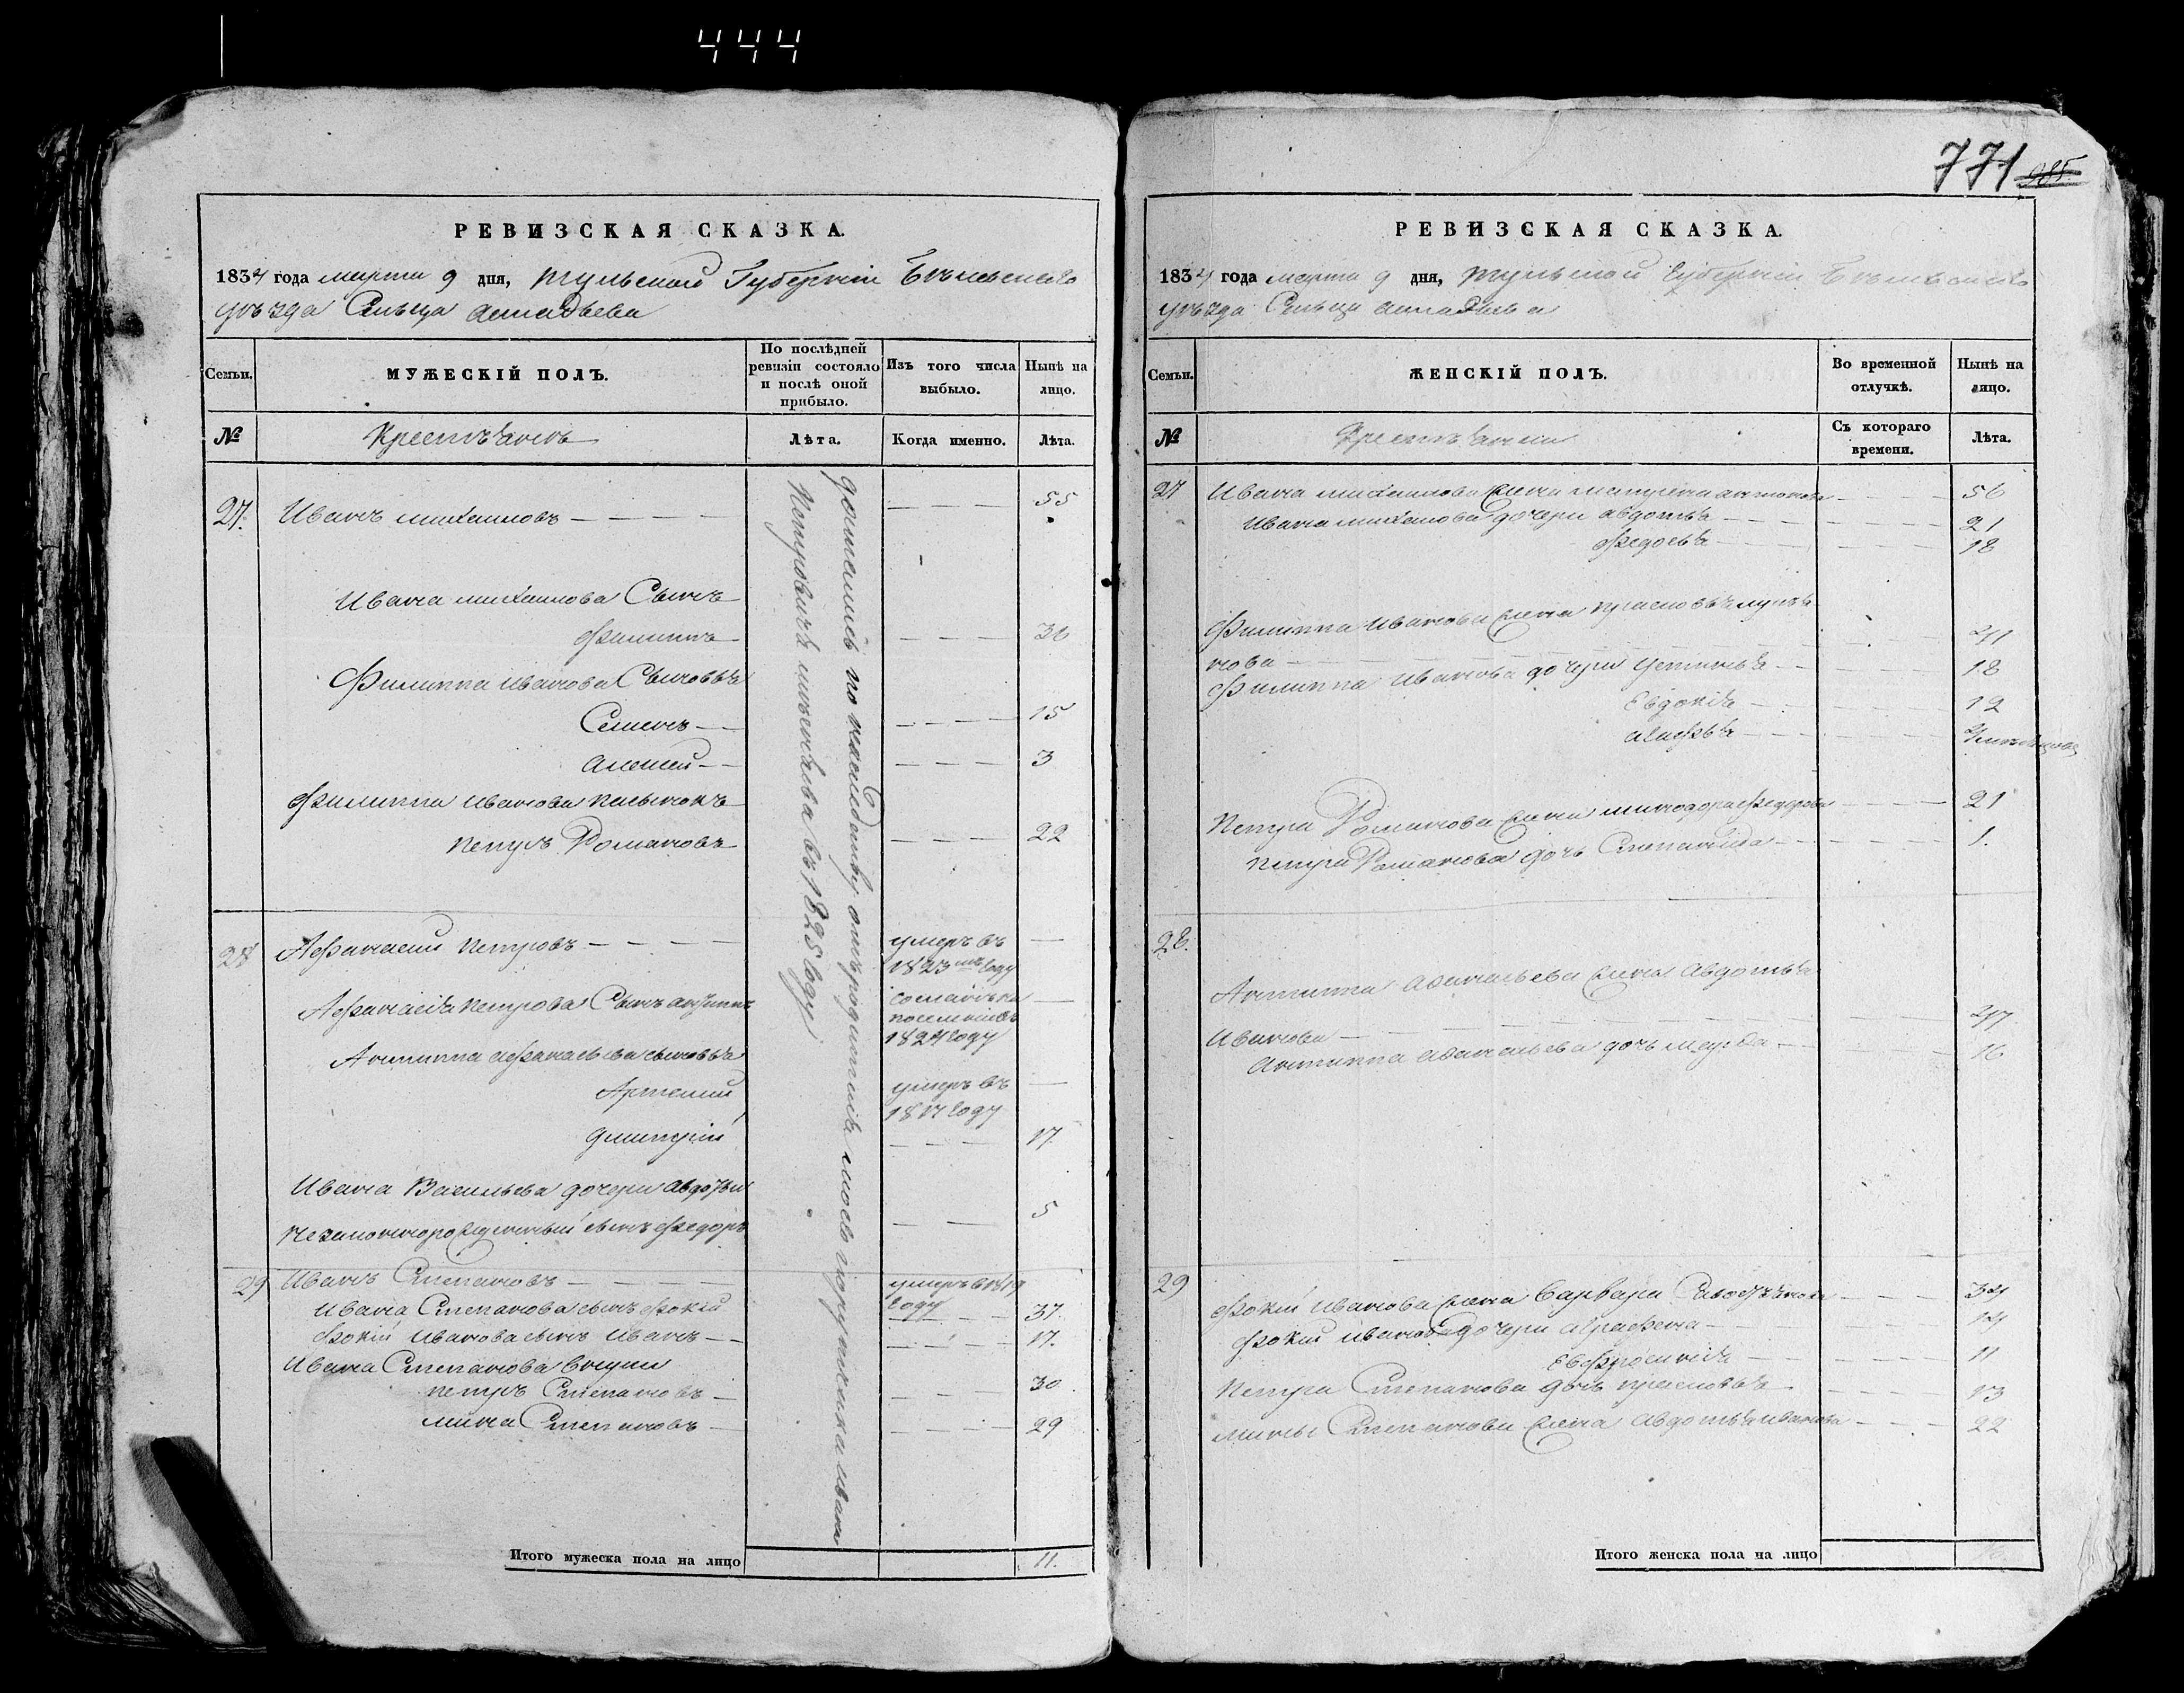 444
771 985.
РЕВИЗСКАЯ СКАЗКА.
1834 года марта 9 дня, Тульской Губерніи Бѣлевскаго
уѣзда Сельца
Семьи.
МУЖЕСКІЙ ПОЛЪ.
По послѣдней ревизіи состояло и послѣ оной прибыло.
Изъ того числа выбыло.
Нынѣ на лицо.
№
Крестьянъ
Лѣта.
Когда именно.
Лѣта.
27. Иванъ михаиловъ — — — — 55
Ивана михаилова Сынъ
Филиппъ — — — 36
Филиппа иванова Сыновья
Семенъ — — — — 15
Алексей — — — — — 3
Филиппа иванова
петръ Романовъ — — — 22
доставшiеся по наследству отъ родителя моего порутчика ивана
Петровича въ 1825 году
28 Афанасий петровъ — — — — умеръ въ —
1823мъ году
Афанасія петрова Сынъ антипъ сосланъ на —
поселение въ
1824 году
Антиппа афанасьева сыновья
Артемий умеръ въ —
1817 году
дмитрій — — — 17.
Ивана Васильева дочери авдотьи 5
незаконнорожденный сынъ федоръ — —
29 Иванъ Степановъ — — — — умеръ в 1819
Ивана Степанова сынъ фокій году — — 37.
фокій иванова сынъ иванъ — — — — — 17.
Ивана Степанова внуки
петръ Степановъ — — — 30
мина Степановъ — — — — — 29
Итого мужеска пола на лицо 11.
РЕВИЗСКАЯ СКАЗКА.
1834 года марта 9 дня, тульской Губерніи Бѣлевскаго
уѣзда Сельца
Семьи.
ЖЕНСКІЙ ПОЛЪ.
Во временной отлучкѣ.
Нынѣ на лицо.
№
Крестьянки
Съ котораго времени.
Лѣта.
27 Ивана михаилова жена антонова — — — 56
Ивана михаилова дочери авдотья — — — — — 21
федосья — — — — 18
Филиппа иванова жена прасковья
нова — — — — 41
Филиппа иванова дочери устинья — — — — 18
Евдокія — — — — 12
— — — —
Петра Романова жена минодора федорова — — — 21
петра Романова дочь Степанида — — — — 1.
28. Антиппа афанасьева жена авдотья
Иванова — — — — 47
антиппа афанасьева дочь — — — 16
29 фокій иванова жена варвара — — — 34
фокій иванова дочери аграфена — — — — 14
Евфросинія — — — — 11
Петра Степанова дочь прасковья — — — 13
мины Степанова жена авдотья иванова — — — 22
Итого женска пола на лицо